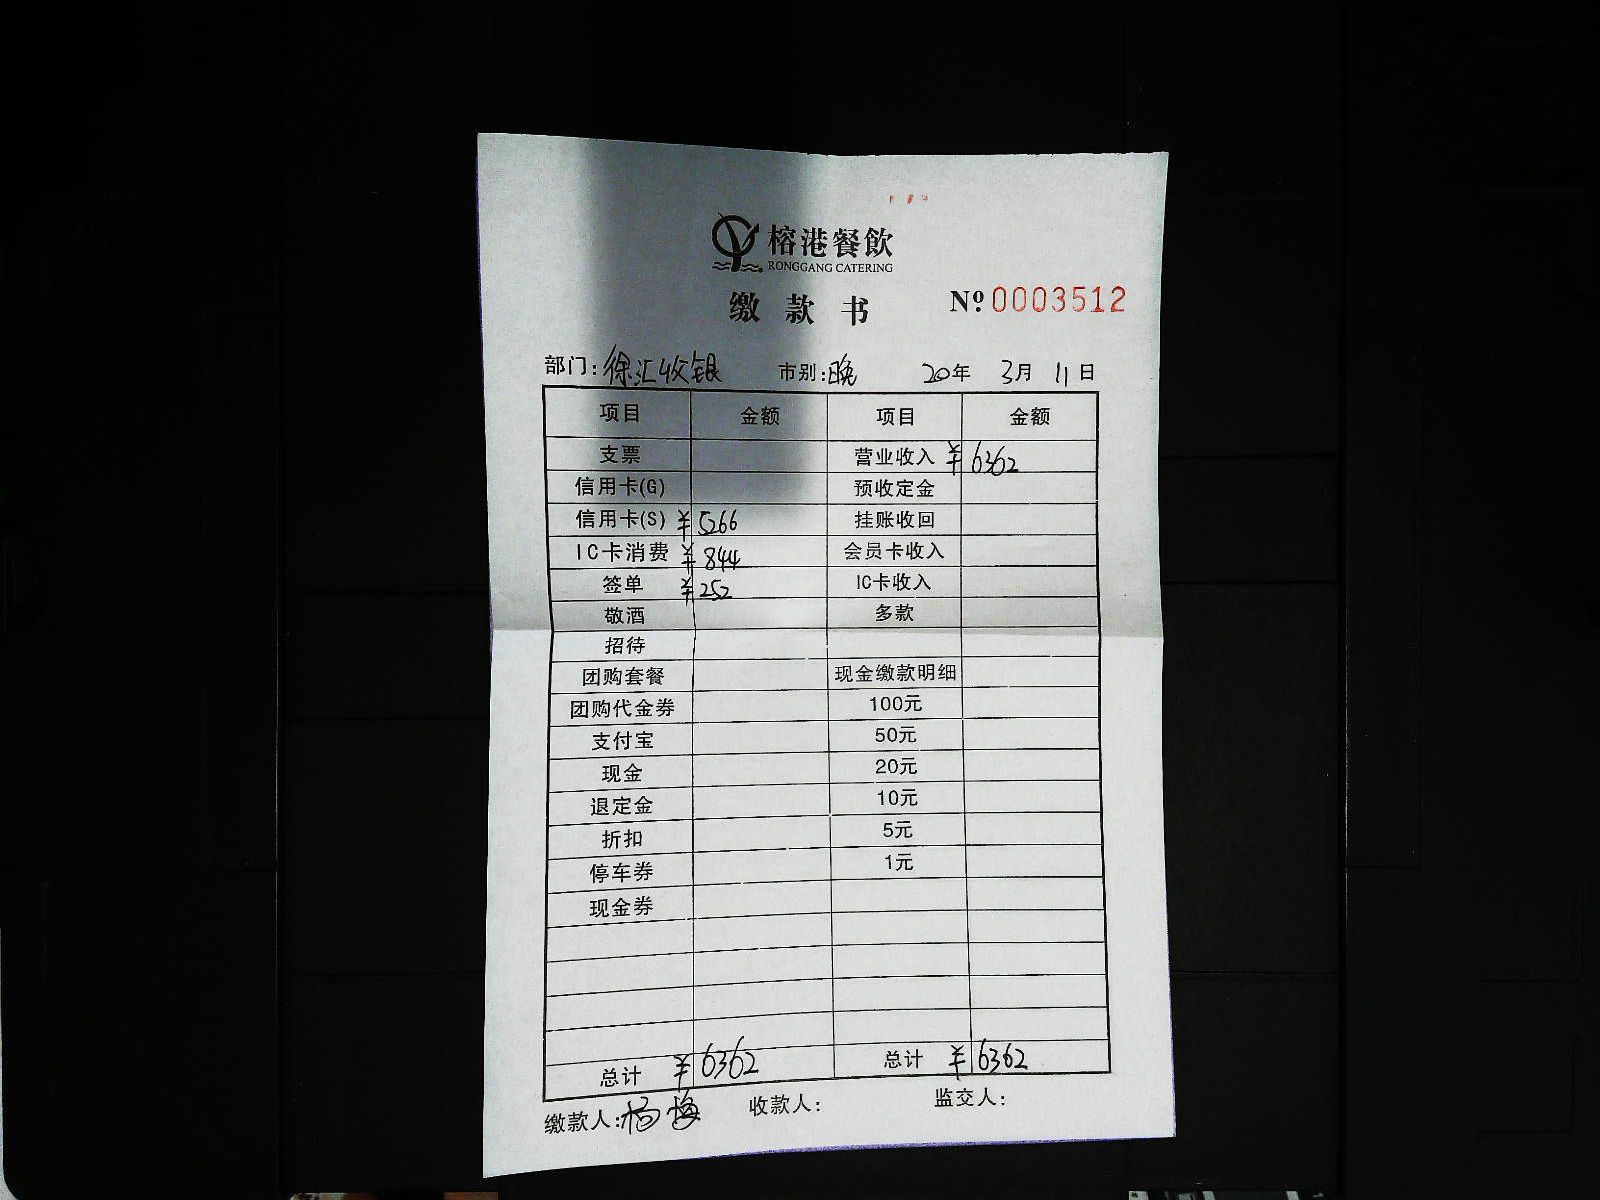 榕港餐飲
RONGGANG CATERING
缴款书 № 0003512
部门:徐汇收银 市别:晚 20年 3月 11日
项目 金额 项目 金额
支票 营业收入 ¥6362
信用卡(G) 预收定金
信用卡(S) ¥5266 挂账收回
IC卡消费 ¥844 会员卡收入
签单 ¥252 IC卡收入
敬酒 多款
招待
团购套餐 现金缴款明细
团购代金券 100元
支付宝 50元
现金 20元
退定金 10元
折扣 5元
停车券 1元
现金券
总计 ¥6362 总计 ¥6362
缴款人:杨梅 收款人: 监交人: